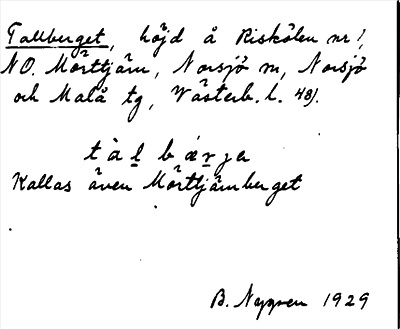 Tallberget, höjd å Riskölen nr 1,
NO. Mörttjärn, Norsjö sn, Norsjö
och Malå tg, Västerb. l. 48).
tàl̲ bær̲ je
Kallas även Mörttjärnberget
B. Nyman 1929